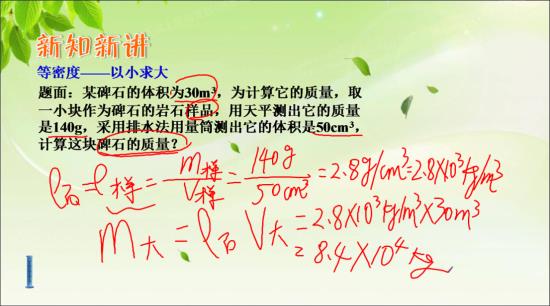 新知新讲
等密度——以小求大
题面：某碑石的体积为30m³，为计算它的质量，取
一小块作为碑石的岩石样品，用天平测出它的质量
是140g，采用排水法用量筒测出它的体积是50cm³，
计算这块碑石的质量？
ρ石=ρ样=m样/V样=140g/50cm³=2.8g/cm³=2.8×10³kg/m³
m大=ρ石V大=2.8×10³kg/m³×30m³
=8.4×10⁴kg